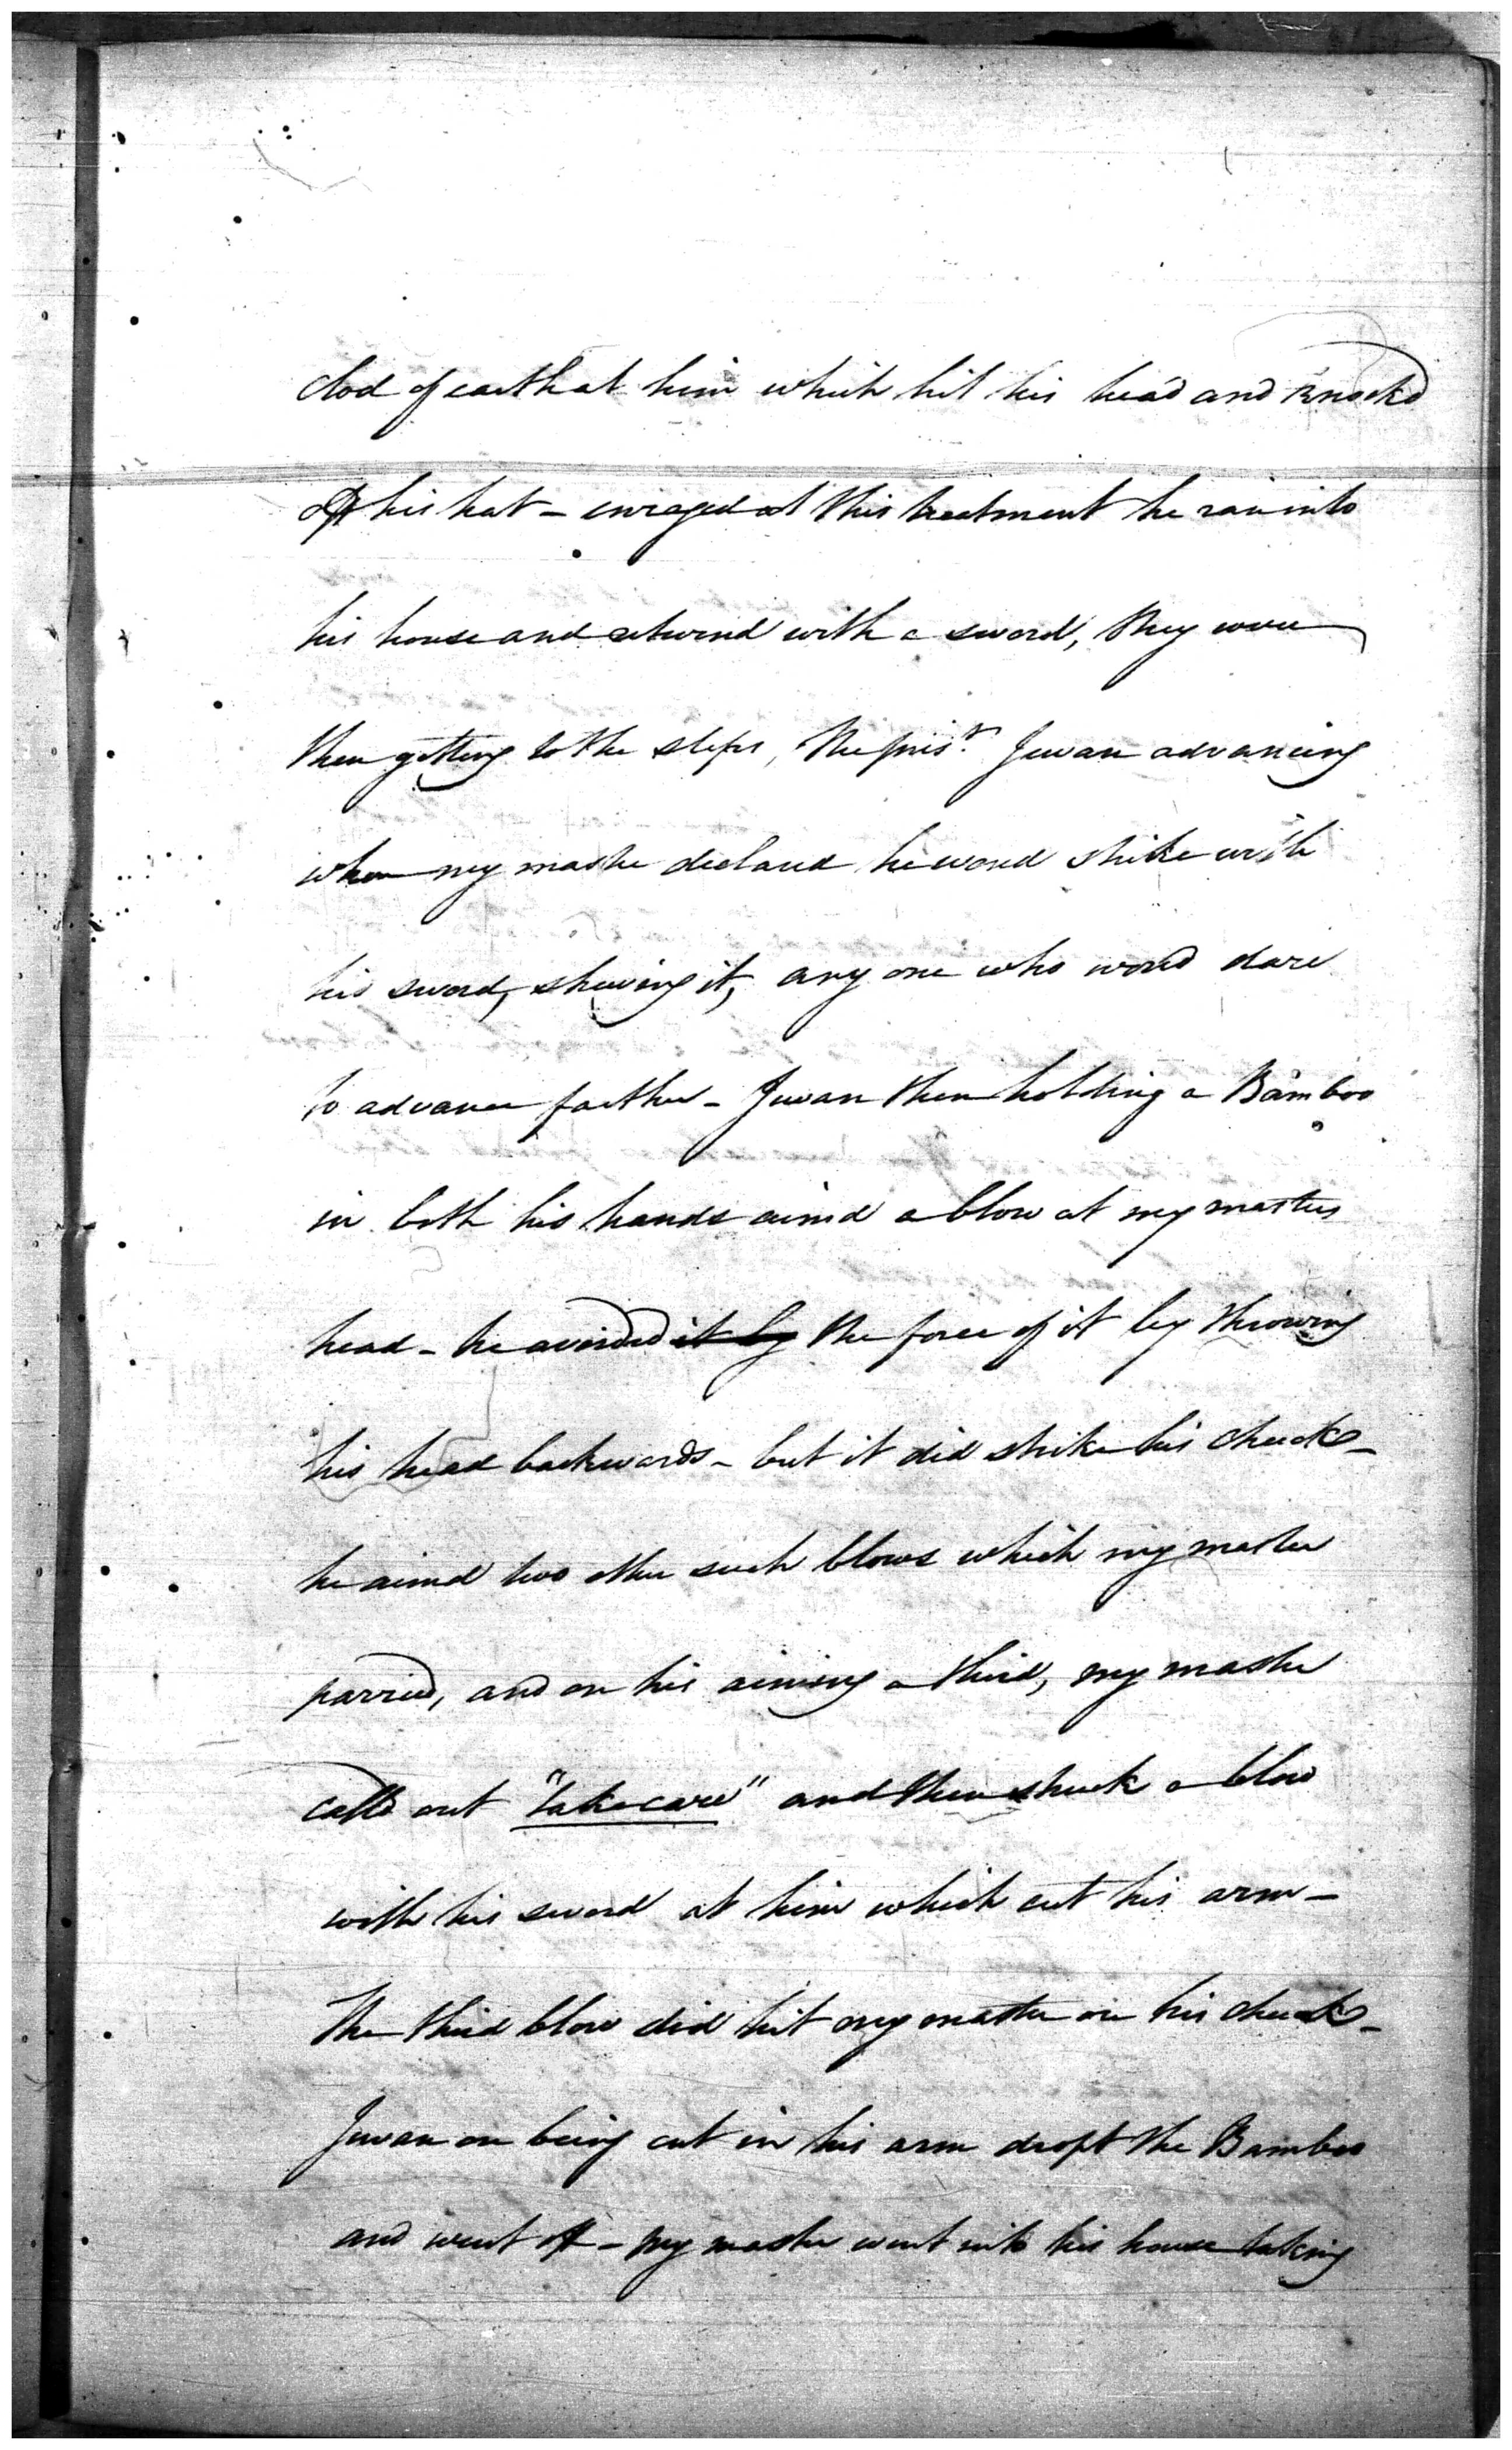 clod of earth at him which hit his head and knockd
off his hat - enraged at this treatment he ran into
his house and returnd with a sword, they were
then getting to the steps, the pris.r Juwan advancing
when my master declared he woud strike with
his sword, shewing it, any one who would dare
to advance farther - Juwan then holding a Bamboo
in both his hands aimd a blow at my masters
head - he avoided it by the force of it by throwing
his head backwards - but it did strike his cheek -
he aimd two other such blows which my master
parried, and on his aiming a third, my master
calld out "take care" and then struck a blow
with his sword at him which cut his arm -
The third blow did hit my master on his cheek -
Juwan on being cut in his arm dropt the Bamboo
and went off - my master went into his house taking